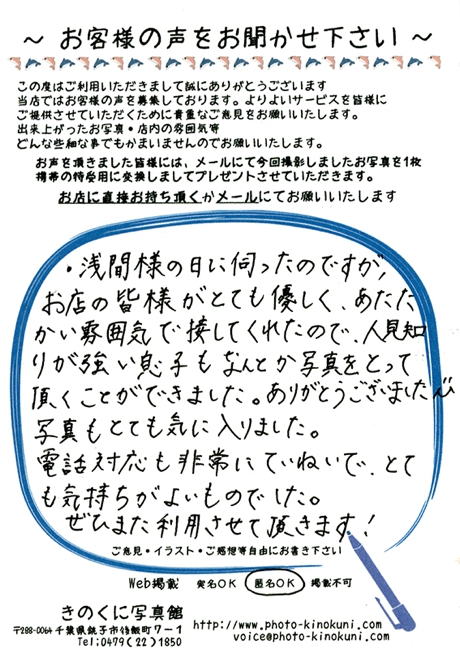 ～ お客様の声をお聞かせ下さい ～
この度はご利用いただきまして誠にありがとうございます
当店ではお客様の声を募集しております。よりよいサービスを皆様に
ご提供させていただくために貴重なご意見をお願いいたします。
出来上がったお写真・店内の雰囲気等
どんな些細な事でもかまいませんのでお願いいたします。
お声を頂きました皆様には、メールにて今回撮影しましたお写真を1枚
携帯の待受用に変換しましてプレゼントさせていただきます。
お店に直接お持ち頂くかメールにてお願いいたします
・浅間様の日に伺ったのですが、
お店の皆様がとても優しく、あたた
かい雰囲気で接してくれたので、人見知
りが強い息子もなんとか写真をとって
頂くことができました。ありがとうございました
写真もとても気に入りました。
電話対応も非常にていねいで、とて
も気持ちがよいものでした。
ぜひまた利用させて頂きます!
ご意見・イラスト・ご感想等自由にお書き下さい
Web掲載 実名OK 匿名OK 掲載不可
きのくに写真館
〒288-0064 千葉県銚子市後飯町7-1
Tel0479(22)1850
http://www.photo-kinokuni.com/
voice@photo-kinokuni.com